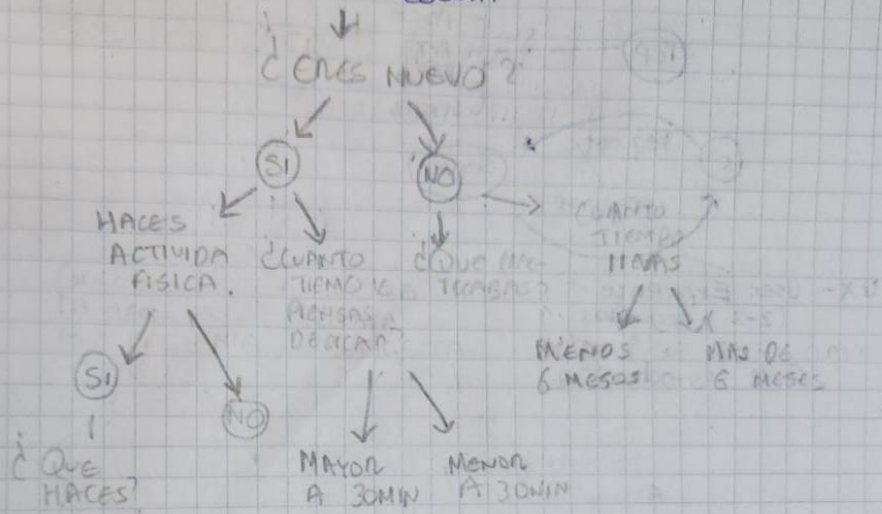 ¿ERES NUEVO?
SI
NO
HACES
ACTIVIDA
FISICA.
¿CUANTO
TIEMO
PIENSAS
DEDICAR?
¿QUE
CUANTO
TIEMPO
MENOS
6 MESOS
MAS DE
6 MESES
SI
NO
¿QUE
HACES?
MAYOR
A 30MIN
MENOR
A 30MIN